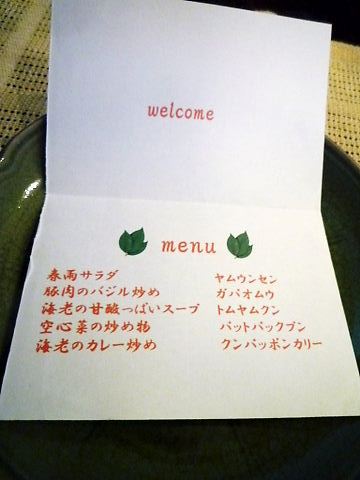 welcome
menu
春雨サラダ ヤムウンセン
豚肉のバジル炒め ガパオムウ
海老の甘酸っぱいスープ トムヤムクン
空心菜の炒め物 パットパックブン
海老のカレー炒め クンパッポンカリー